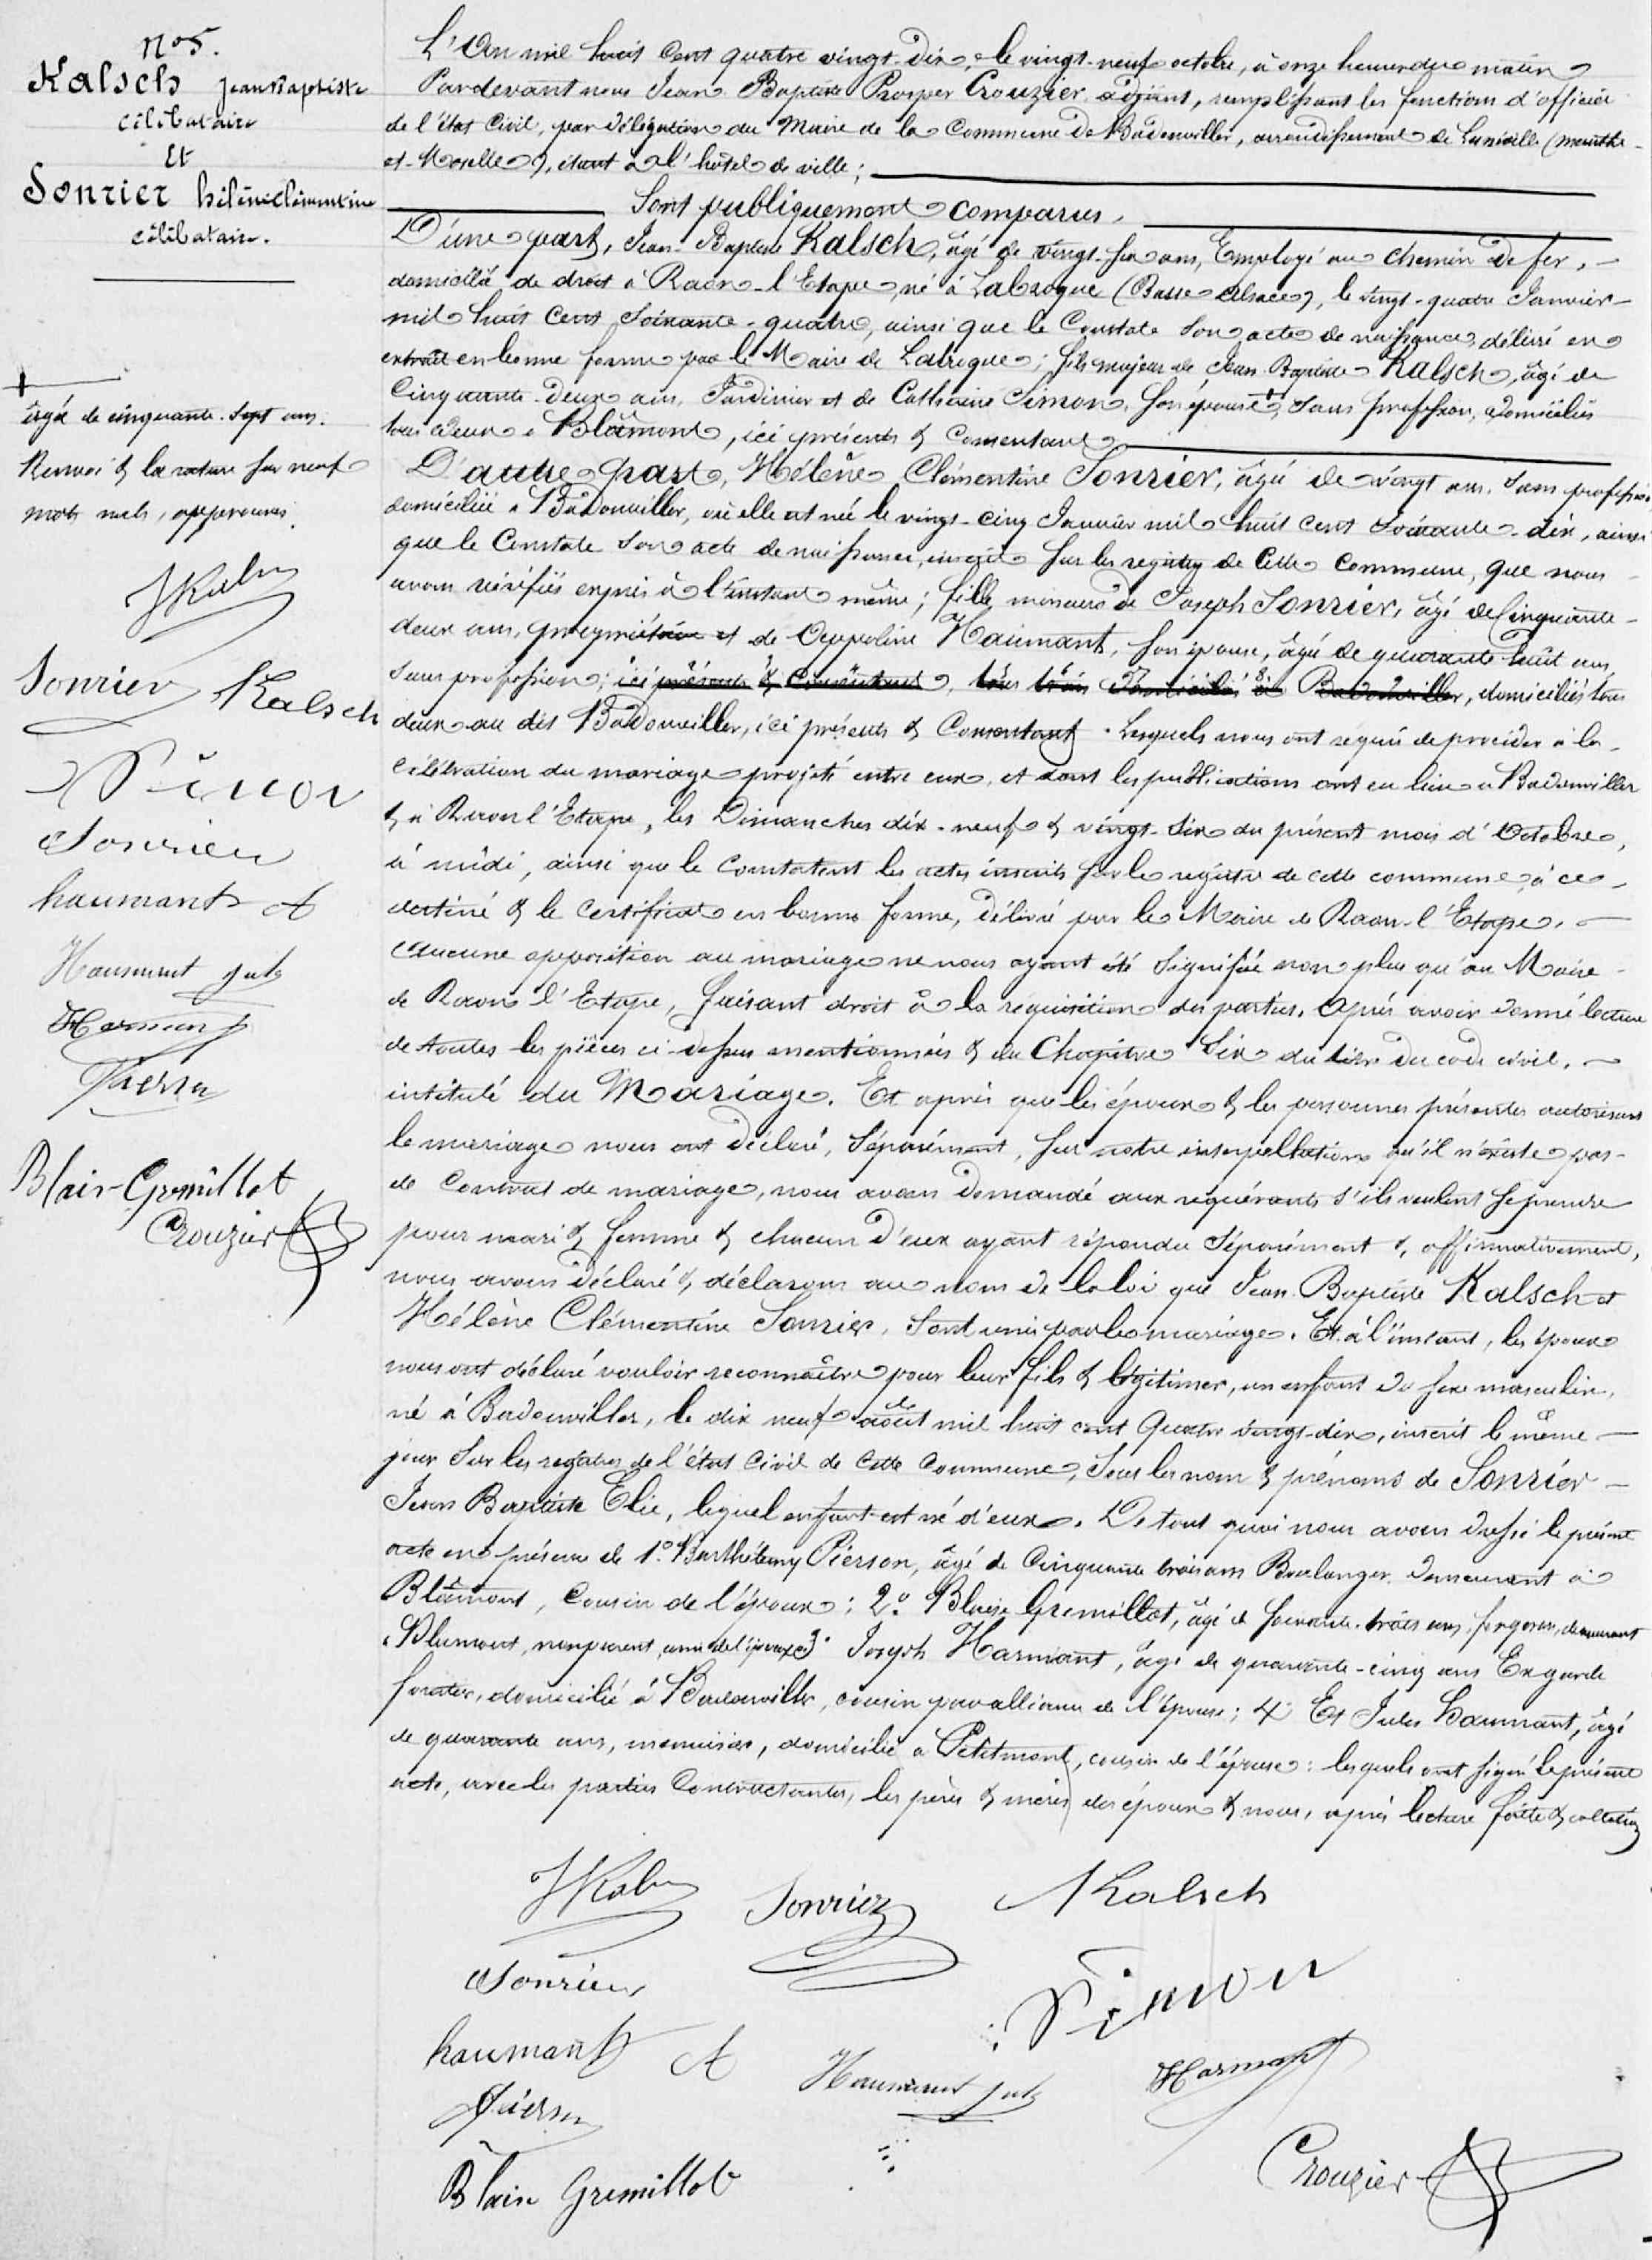 N° 5.
Kalsch Jean Baptiste
célibataire
Et
Sonrier hélène clémentine
célibataire.
âgée de cinquante-sept ans.
Renvoi & la rature sur neuf
mots nuls, approuvés.
JKals
Sonrier Kalsch
Simon
Sonrier
haumant A
Haumant jules
Harmant
Pierson
Blais-Gremillot
Crouzier
L'An mil huit cent quatre vingt-dix, le vingt-neuf octobre, à onze heures du matin
Pardevant nous Jean Baptiste Prosper Crouzier adjoint, remplissant les fonctions d'officier
de l'état Civil, par délégation du Maire de la Commune de Badonviller, arrondissement de Lunéville (meurthe-
et-Moselle), étant à l'hôtel de ville;
Sont publiquement comparus.
D'une part, Jean-Baptiste Kalsch, âgé de vingt-six ans, Employé au chemin de fer,
domicilié de droit à Raon-l'Etape, né à Labroque (Basse Alsace), le vingt-quatre Janvier
mil huit cent soixante-quatre, ainsi que le Constate son acte de naissance, délivré en
extrait en bonne forme par le Maire de Labroque; fils majeur de Jean Baptiste Kalsch, âgé de
Cinquante-deux ans, Jardinier et de Catherine Simon, son épouse, sans profession, domiciliés
tous deux à Blâmont, ici présents & Consentant
D'autre part, Hélène Clémentine Sonrier, âgée de vingt ans, sans profession
domiciliée à Badonviller, où elle est née le vingt-cinq Janvier mil huit cent soixante-dix, ainsi
que le Constate son acte de naissance, inscrit sur les registres de Cette Commune, que nous
avons vérifiés exprès à l'instant même; fille mineure de Joseph Sonrier, âgé de Cinquante-
deux ans, propriétaire et de Appoline Haumant, son épouse, âgée de quarante huit ans,
sans profession; ici présents & Consentant, tous trois domiciliés à Badonviller, domiciliés tous
deux au dit Badonviller, ici présents & Consentant. Lesquels nous ont requis de procéder à la
Célébration du mariage projeté entre eux, et dont les publications ont eu lieu à Badonviller
& à Raon l'Etape, les Dimanches dix-neuf & vingt-six du présent mois d'Octobre,
à midi, ainsi que le Constatent les actes inscrits sur le registre de cette commune, à ce
destiné & le Certificat en bonne forme, délivré par le Maire de Raon-l'Etape.
Aucune opposition au mariage ne nous ayant été signifiée non plus qu'au Maire
de Raon l'Etape, faisant droit à la réquisition des parties, Après avoir donné lecture
de toutes les pièces ci-dessus mentionnées & du Chapitre Six du titre du code civil,
intitulé du Mariage. Et après que les époux & les personnes présentes autorisant
le mariage nous ont déclaré, séparément, sur notre interpellation qu'il n'existe pas
de Contrat de mariage, nous avons demandé aux requérants s'ils veulent se prendre
pour mari & femme & chacun d'eux ayant répondu séparément & affirmativement,
nous avons déclaré & déclarons au nom de la loi que Jean Baptiste Kalsch et
Hélène Clémentine Sonrier, sont unis par le mariage. Et à l'instant, les époux
nous ont déclaré vouloir reconnaître pour leur fils & légitimer, un enfant du sexe masculin,
né à Badonviller, le dix neuf août mil huit cent quatre vingt-dix, inscrit le même
jour sur les registres de l'état Civil de Cette Commune, sous les nom & prénoms de Sonrier
Jean Baptiste Elie, lequel enfant est né d'eux. De tout quoi nous avons dressé le présent
acte en présence de 1° Barthélemy Pierson, âgé de Cinquante trois ans Boulanger demeurant à
Blâmont, Cousin de l'époux; 2° Blaise Gremillot, âgé de soixante-trois ans, forgeron, demeurant
à Blamont, non parent, ami de l'époux; 3° Joseph Harmant, âgé de quarante-cinq ans Ex garde
forestier, domicilié à Badonviller, cousin par alliance de l'épouse; 4° Et Jules Haumant, âgé
de quarante ans, menuisier, domicilié à Petitmont, cousin de l'épouse: lesquels ont signé le présent
acte, avec les parties Contractantes, les pères & mères des époux & nous, après lecture faite & collation
JKals Sonrier Kalsch
Sonrier
Simon
haumant A Haumant jules Harmant
Pierson
Blaise Gremillot
Crouzier